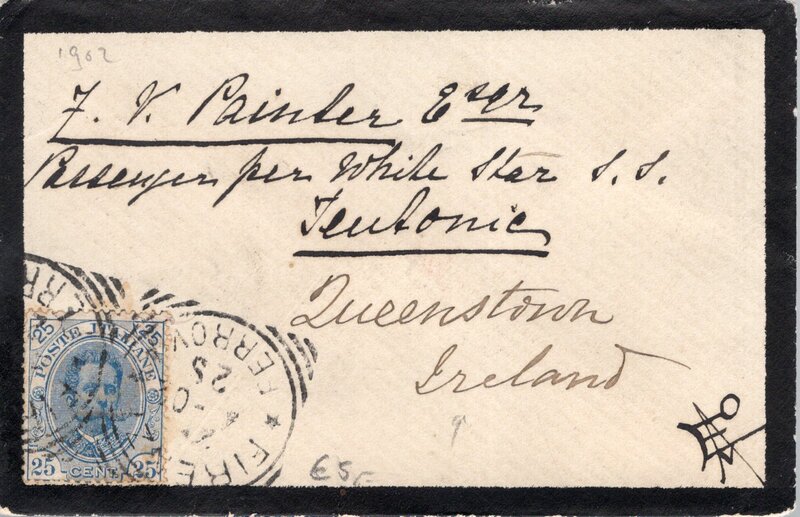 1902
F. V. Painter Esqr
Passenger per White Star S. S.
Teutonic
Queenstown
Ireland
25 25
POSTE ITALIANE
25 CENT 25
FERROV
25
FIRE